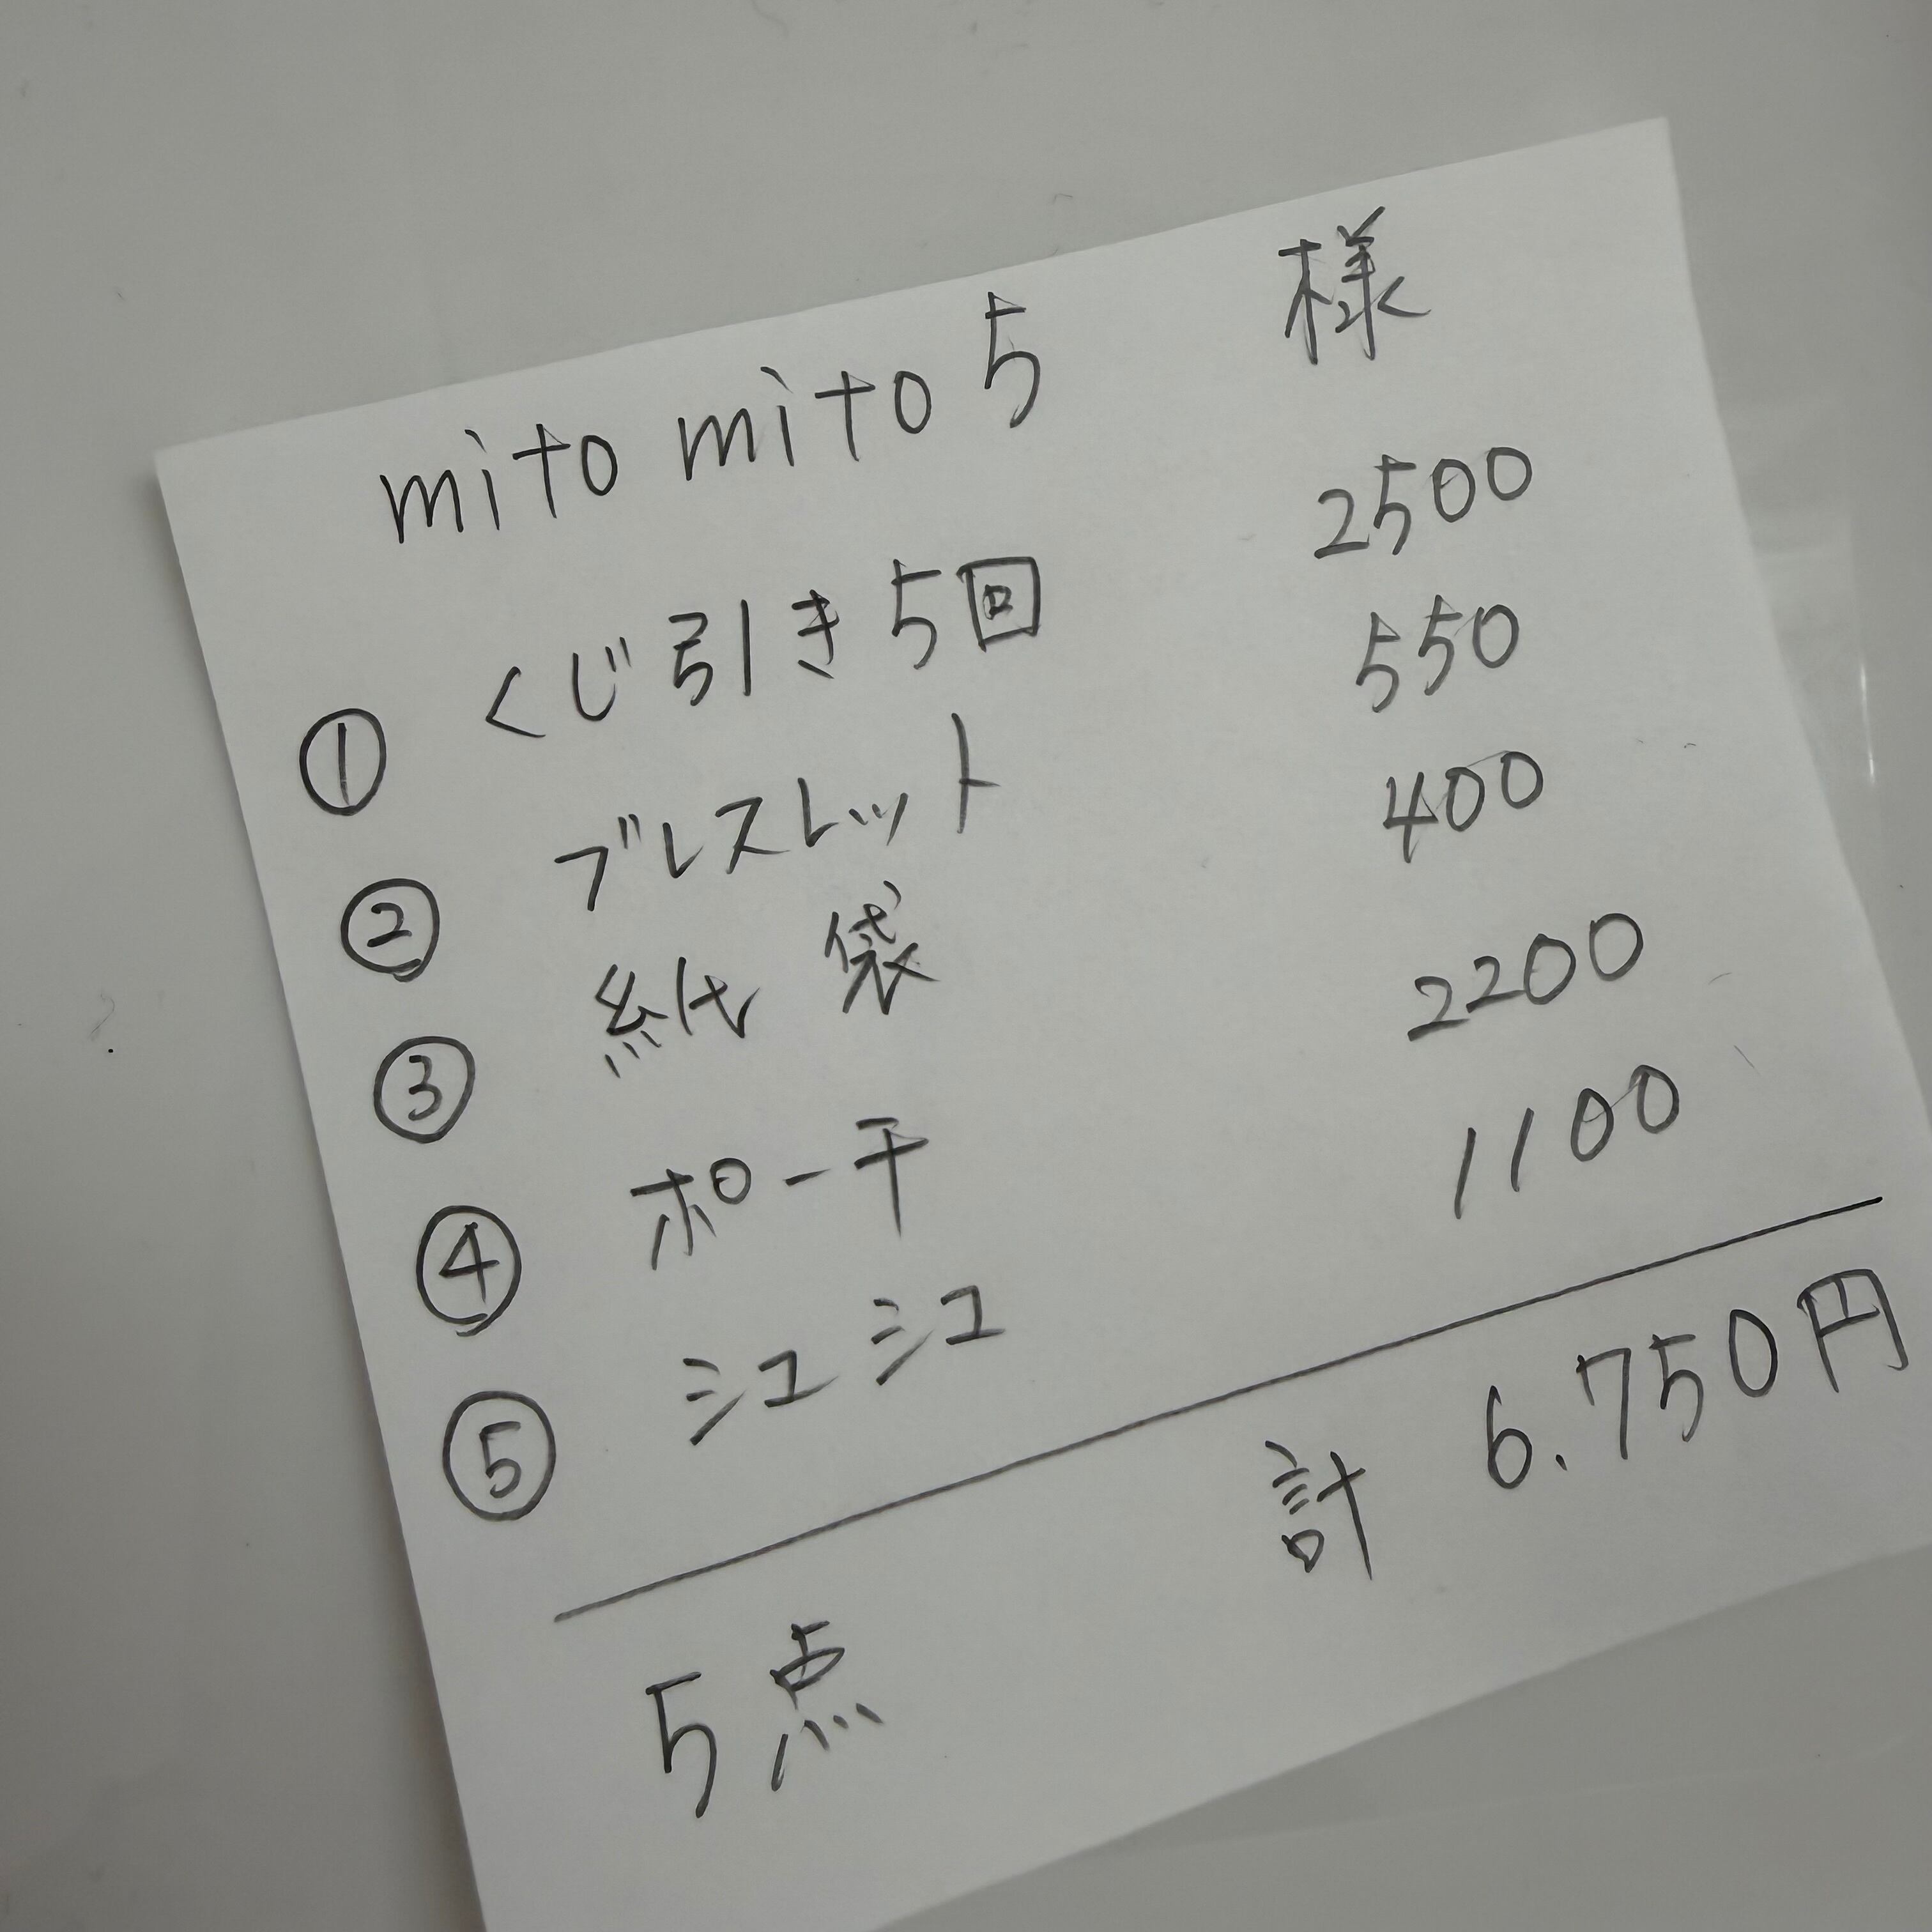 mito mito 5 様
① くじ引き5回 2500
② ブレスレット 550
③ 紙袋 400
④ ポーチ 2200
⑤ シュシュ 1100
5点 計 6.750円